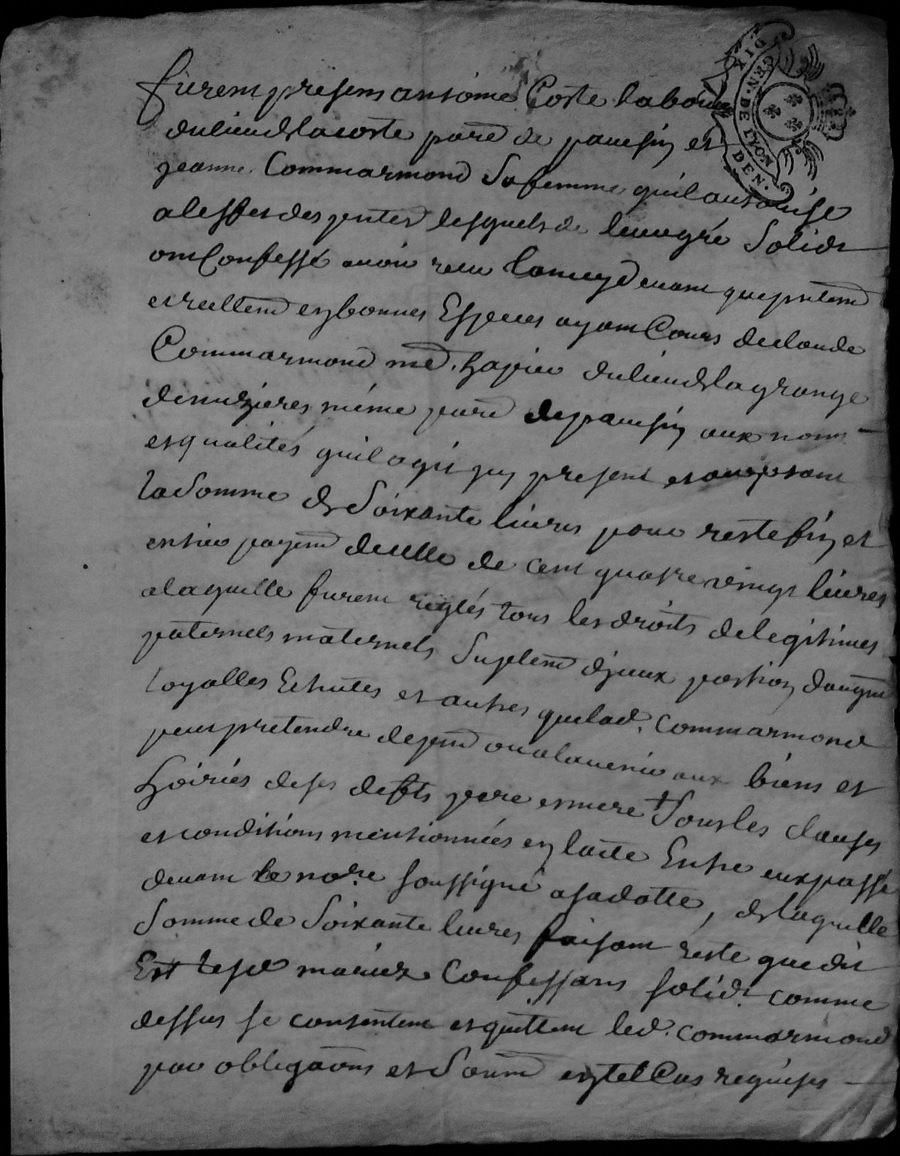 furent presens antoine Coste labour
du lieu de la coste paroe de panissin et
jeanne Commarmond Sa femme quil authorise
a leffet des pntes lesquels de leur gré Solidt
ont Confessé avoir receu cy devant
et reellemt en bonnes Especes ayant Cours de claude
Commarmond md. du lieu de la grange
même paroe de panissin aux noms
et qualités quil agit present et acceptant
la Somme de Soixante livres pour reste fin et
entier payemt de celle de cent quatre vingt livres
a laquelle furent reglés tous les droits de legitimes
paternels maternels Suplemt portion daugmt
loyalles Echutes et autres que lad. Commarmond
peut pretendre de pnt ou a lavenir aux biens et
hoiries de ses defts pere et mere Sous les clauses
et conditions mentionnées en lacte Entre eux passé
devant le nore soussigné a sa datte, de laquelle
Somme de Soixante livres faisant reste que dit
Est lesd mariez Confessans solidt. comme
dessus se contentent et quittent led. commarmond
par obligaons et Soumd en tel Cas requises
GEN. DE LYON
DIX DEN.